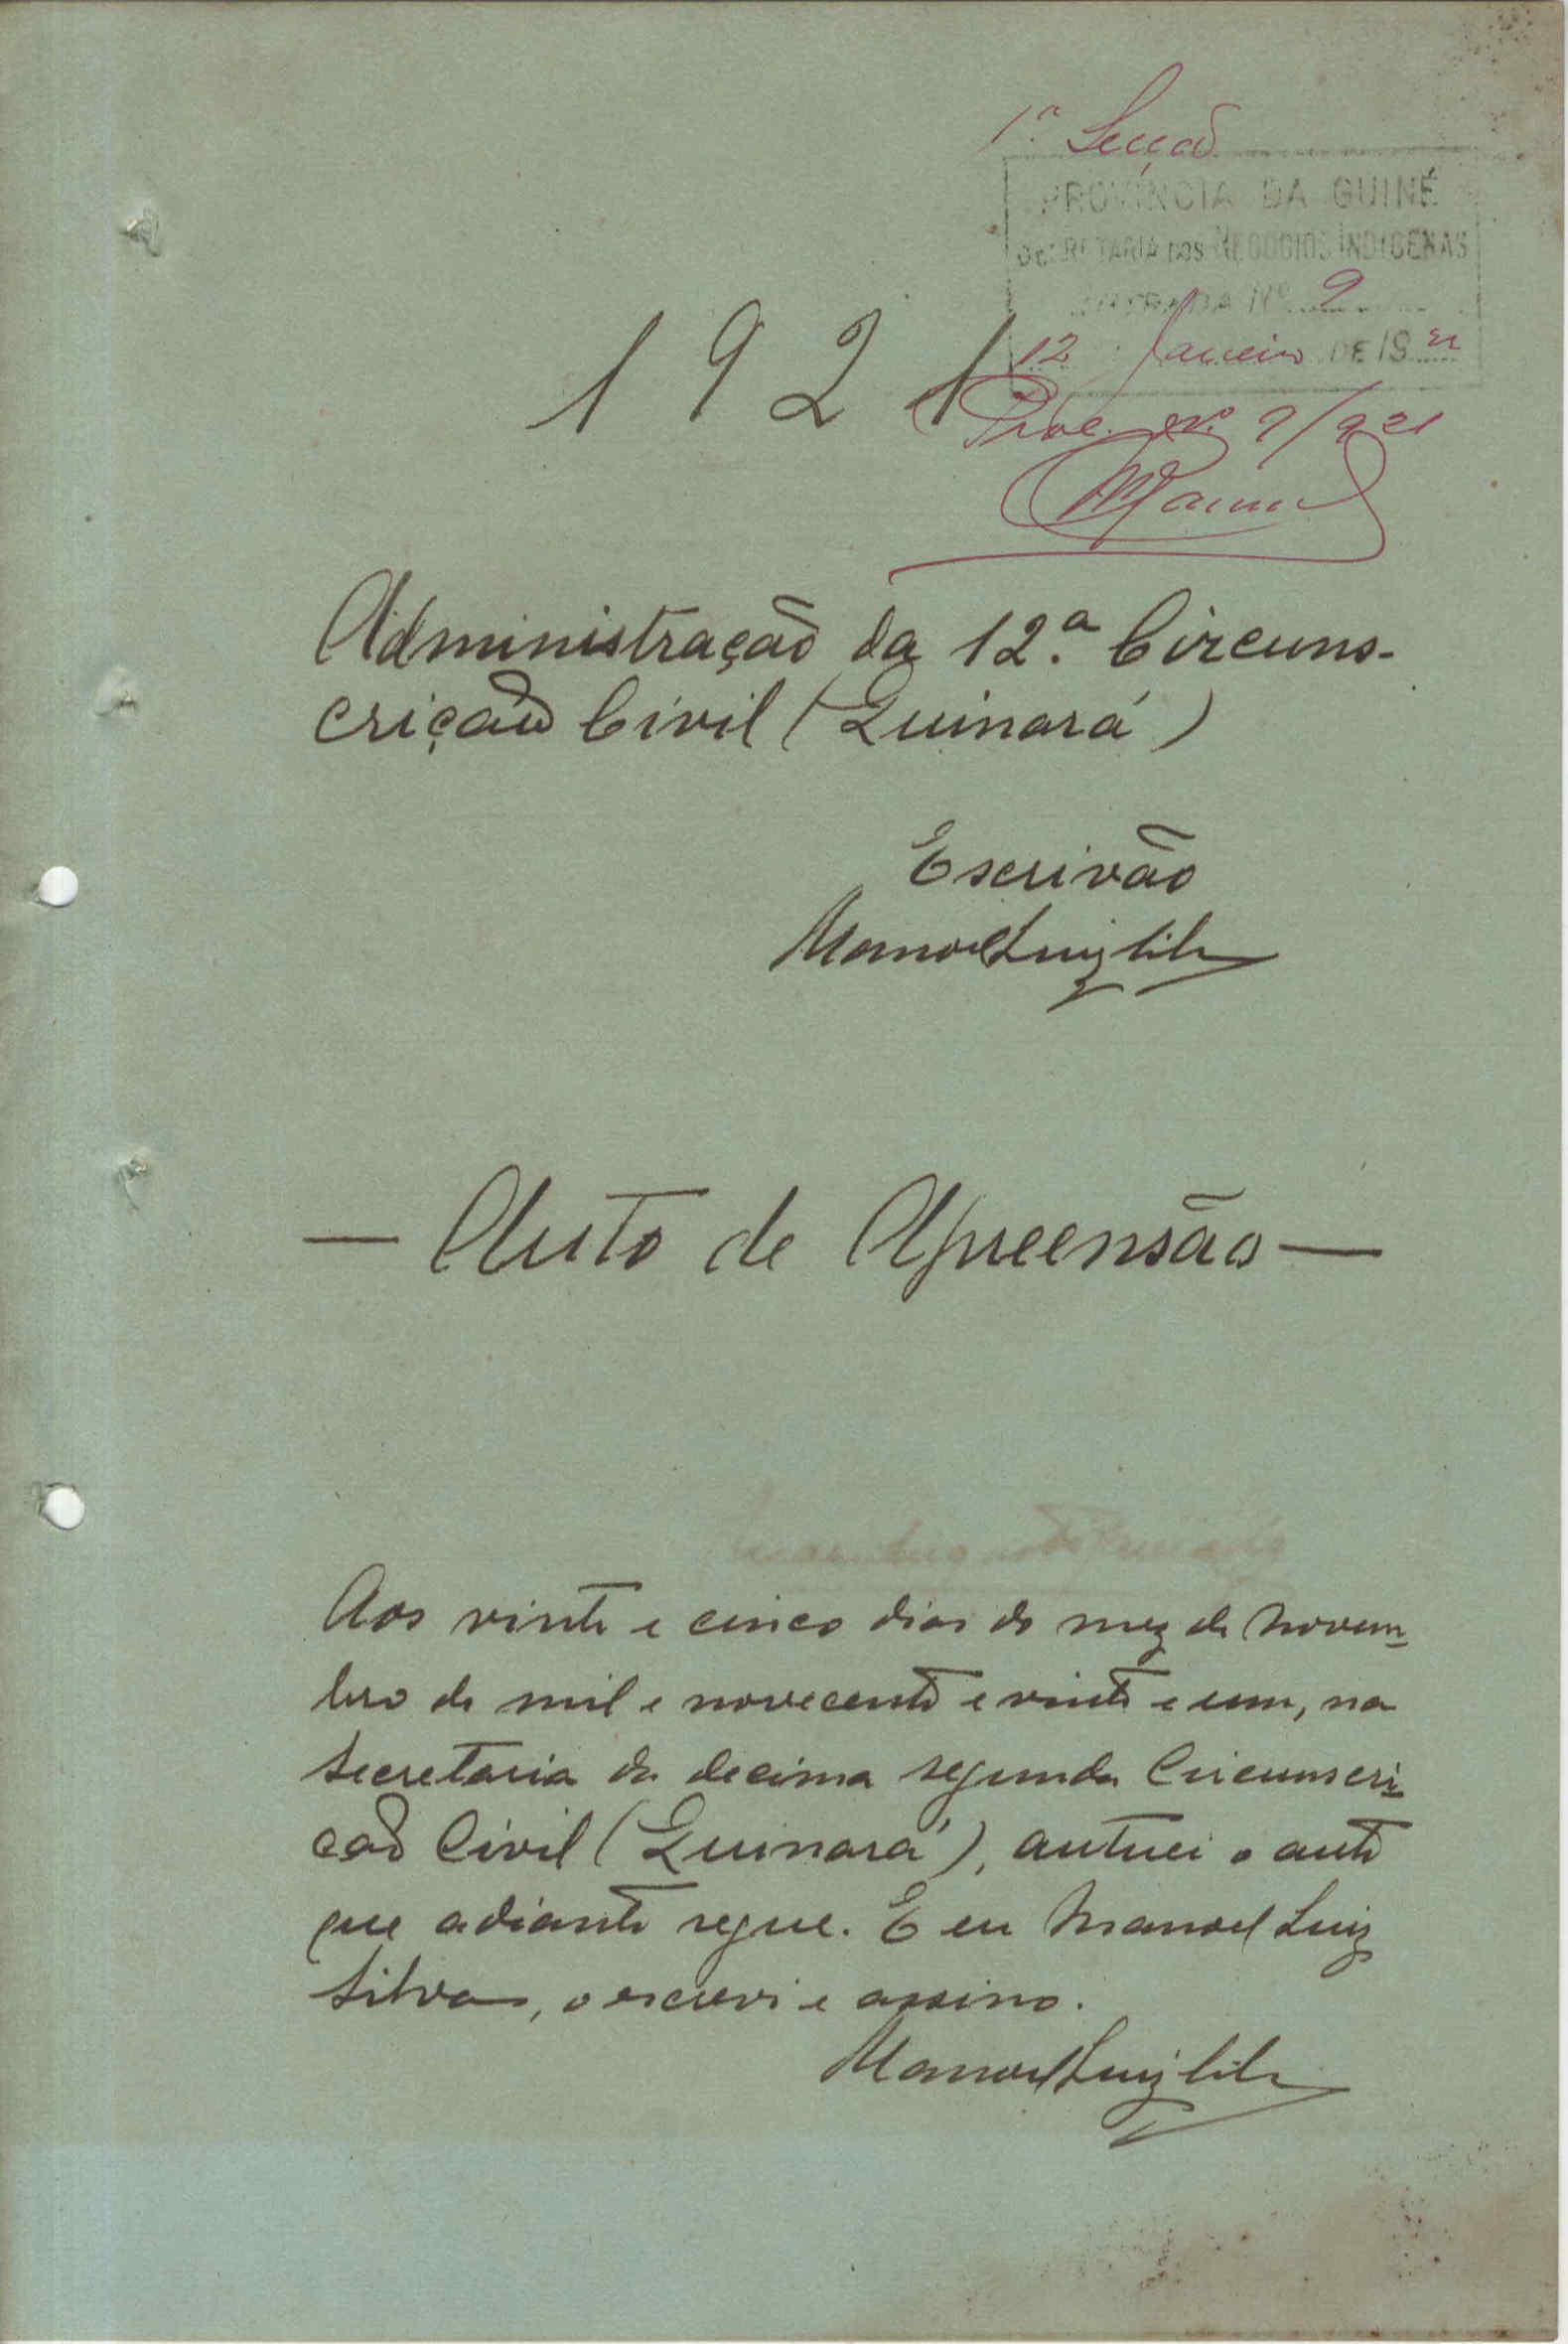 1ª Secção
PROVINCIA DA GUINÉ
SECRETARIA DOS NEGOCIOS INDIGENAS
ENTRADA Nº 9
12 Janeiro DE 1922
1921
Proc. nº 9/921
Administração da 12.ª Circuns-
crição Civil (Quinará)
Escrivão
Manoel Luiz Silva
— Auto de Apreensão —
Aos vinte e cinco dias do mez de Novem-
bro de mil e novecento e vinte e um, na
Secretaria da decima segunda Circunscri-
cão Civil (Quinará), autuei o auto
que adiante segue. E eu Manoel Luiz
Silva, o escrevi e assino.
Manoel Luiz Silva